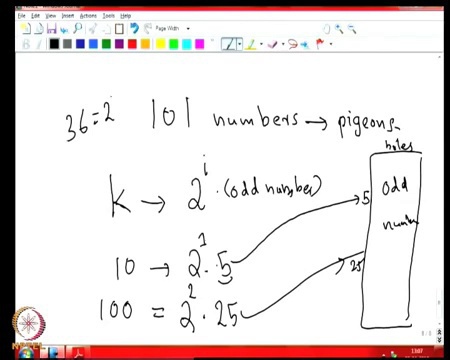 File Edit View Insert Actions Tools Help
Page Width
36=2 101 numbers → pigeons
holes
K → 2^i · (odd number)
5 odd
number
10 → 2^1 · 5
25
100 = 2^2 · 25
13:07